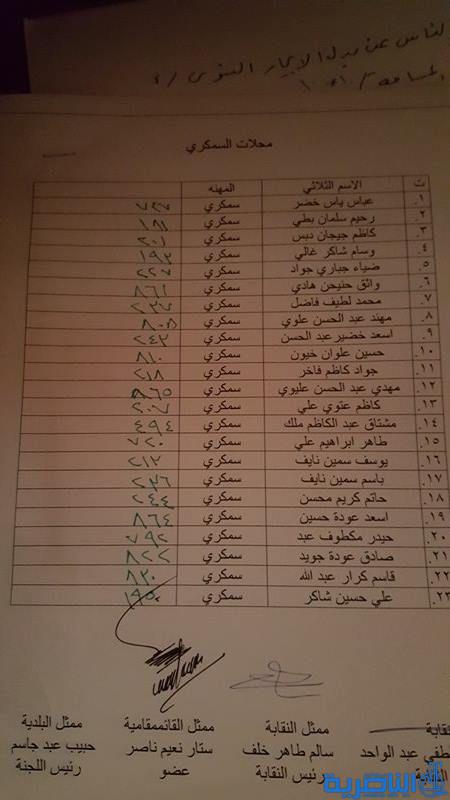 لناس عن مبدل الايجار السنوي
محلات السمكري
ت الاسم الثلاثي المهنه
١. عباس ياس خضر سمكري ٧٢٧
٢. رحيم سلمان بطي سمكري ١٨١
٣. كاظم جيجان دبس سمكري ٢٠١
٤. وسام شاكر غالي سمكري ١٩٢
٥. ضياء جباري جواد سمكري ٢٢٧
٦. واثق حنيحن هادي سمكري ٨٦١
٧. محمد لطيف فاضل سمكري ٢٣٧
٨. مهند عبد الحسن علوي سمكري
٩. اسعد خضير عبد الحسن سمكري ٢٤٣
١٠. حسين علوان خيون سمكري ٨١٠
١١. جواد كاظم فاخر سمكري ٢١٨
١٢. مهدي عبد الحسن عليوي سمكري ٨٦٥
١٣. كاظم عنوي علي سمكري ٢٠٧
١٤. مشتاق عبد الكاظم ملك سمكري ٤٩٤
١٥. طاهر ابراهيم علي سمكري ٧٢٠
١٦. يوسف سمين نايف سمكري ٢١٢
١٧. باسم سمين نايف سمكري ٢٣٦
١٨. حاتم كريم محسن سمكري ٢٤٤
١٩. اسعد عودة حسين سمكري ٨٦٤
٢٠. حيدر مكطوف عبد سمكري ٧٩٢
٢١. صادق عودة جويد سمكري ٨٢٢
٢٢. قاسم كرار عبد الله سمكري ٨٣٠
٢٣. علي حسين شاكر سمكري
نقابة ممثل النقابة ممثل القائممقامية ممثل البلدية
طفي عبد الواحد سالم طاهر خلف ستار نعيم ناصر حبيب عبد جاسم
رئيس النقابة عضو رئيس اللجنة
الناصرية